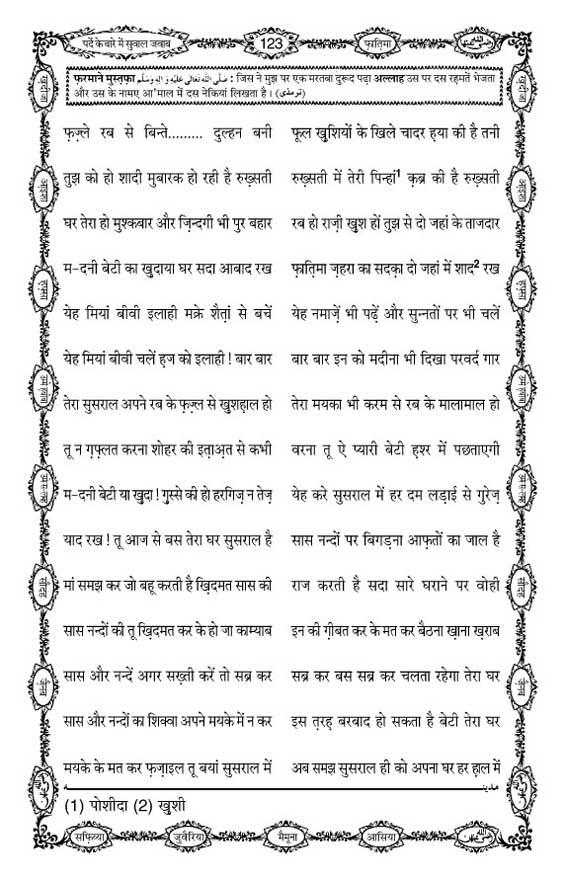 पर्दे के बारे में सुवाल जवाब 123 फ़ातिमा
फ़रमाने मुस्त़फ़ा صَلَّى اللهُ تَعَالٰى عَلَيْهِ وَاٰلِهٖ وَسَلَّم : जिस ने मुझ पर एक मरतबा दुरूद पढ़ा अल्लाह उस पर दस रह़मतें भेजता
और उस के नामए आ'माल में दस नेकियां लिखता है। (ترمذی)
फ़ज़्ले रब से बिन्ते......... दुल्हन बनी फूल ख़ुशियों के खिले चादर ह़या की है तनी
तुझ को हो शादी मुबारक हो रही है रुख़्सती रुख़्सती में तेरी पिन्हां¹ क़ब्र की है रुख़्सती
घर तेरा हो मुश्कबार और ज़िन्दगी भी पुर बहार रब हो राज़ी ख़ुश हों तुझ से दो जहां के ताजदार
म-दनी बेटी का ख़ुदाया घर सदा आबाद रख फ़ातिमा ज़हरा का सदक़ा दो जहां में शाद² रख
येह मियां बीवी इलाही मक्रे शैत़ां से बचें येह नमाज़ें भी पढ़ें और सुन्नतों पर भी चलें
येह मियां बीवी चलें ह़ज को इलाही ! बार बार बार बार इन को मदीना भी दिखा परवर्द गार
तेरा सुसराल अपने रब के फ़ज़्ल से ख़ुशह़ाल हो तेरा मयका भी करम से रब के मालामाल हो
तू न ग़फ़्लत करना शोहर की इत़ाअ़त से कभी वरना तू ऐ प्यारी बेटी ह़श्र में पछताएगी
म-दनी बेटी या ख़ुदा ! ग़ुस्से की हो हरगिज़ न तेज़ येह करे सुसराल में हर दम लड़ाई से गुरेज़
याद रख ! तू आज से बस तेरा घर सुसराल है सास नन्दों पर बिगड़ना आफ़तों का जाल है
मां समझ कर जो बहू करती है ख़िदमत सास की राज करती है सदा सारे घराने पर वोही
सास नन्दों की तू ख़िदमत कर के हो जा काम्याब इन की ग़ीबत कर के मत कर बैठना ख़ाना ख़राब
सास और नन्दें अगर सख़्ती करें तो सब्र कर सब्र कर बस सब्र कर चलता रहेगा तेरा घर
सास और नन्दों का शिक्वा अपने मयके में न कर इस त़रह़ बरबाद हो सकता है बेटी तेरा घर
मयके के मत कर फ़ज़ाइल तू बयां सुसराल में अब समझ सुसराल ही को अपना घर हर ह़ाल में
(1) पोशीदा (2) ख़ुशी
सफ़िय्या जुवैरिया मैमूना आसिया